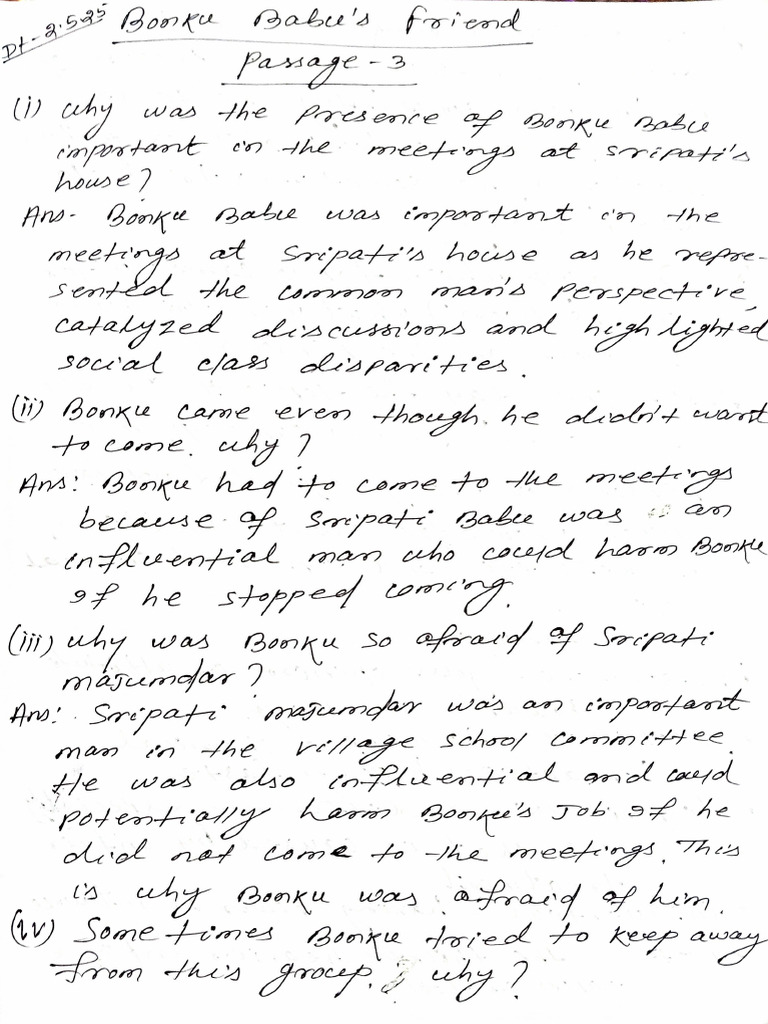 Dt-2.5.25 Bonku Babu's Friend
Passage-3
(i) Why was the presence of Bonku Babu
important in the meetings at Sripati's
house?
Ans- Bonku Babu was important in the
meetings at Sripati's house as he repre-
sented the common man's perspective,
catalyzed discussions and highlighted
social class disparities.
(ii) Bonku came even though he didn't want
to come. Why?
Ans: Bonku had to come to the meetings
because of Sripati Babu was an
influential man who could harm Bonku
If he stopped coming.
(iii) Why was Bonku so afraid of Sripati
majumdar?
Ans: Sripati majumdar was an important
man in the village school committee.
He was also influential and could
potentially harm Bonku's Job If he
did not come to the meetings. This
is why Bonku was afraid of him.
(iv) Some times Bonku tried to keep away
from this group. Why?